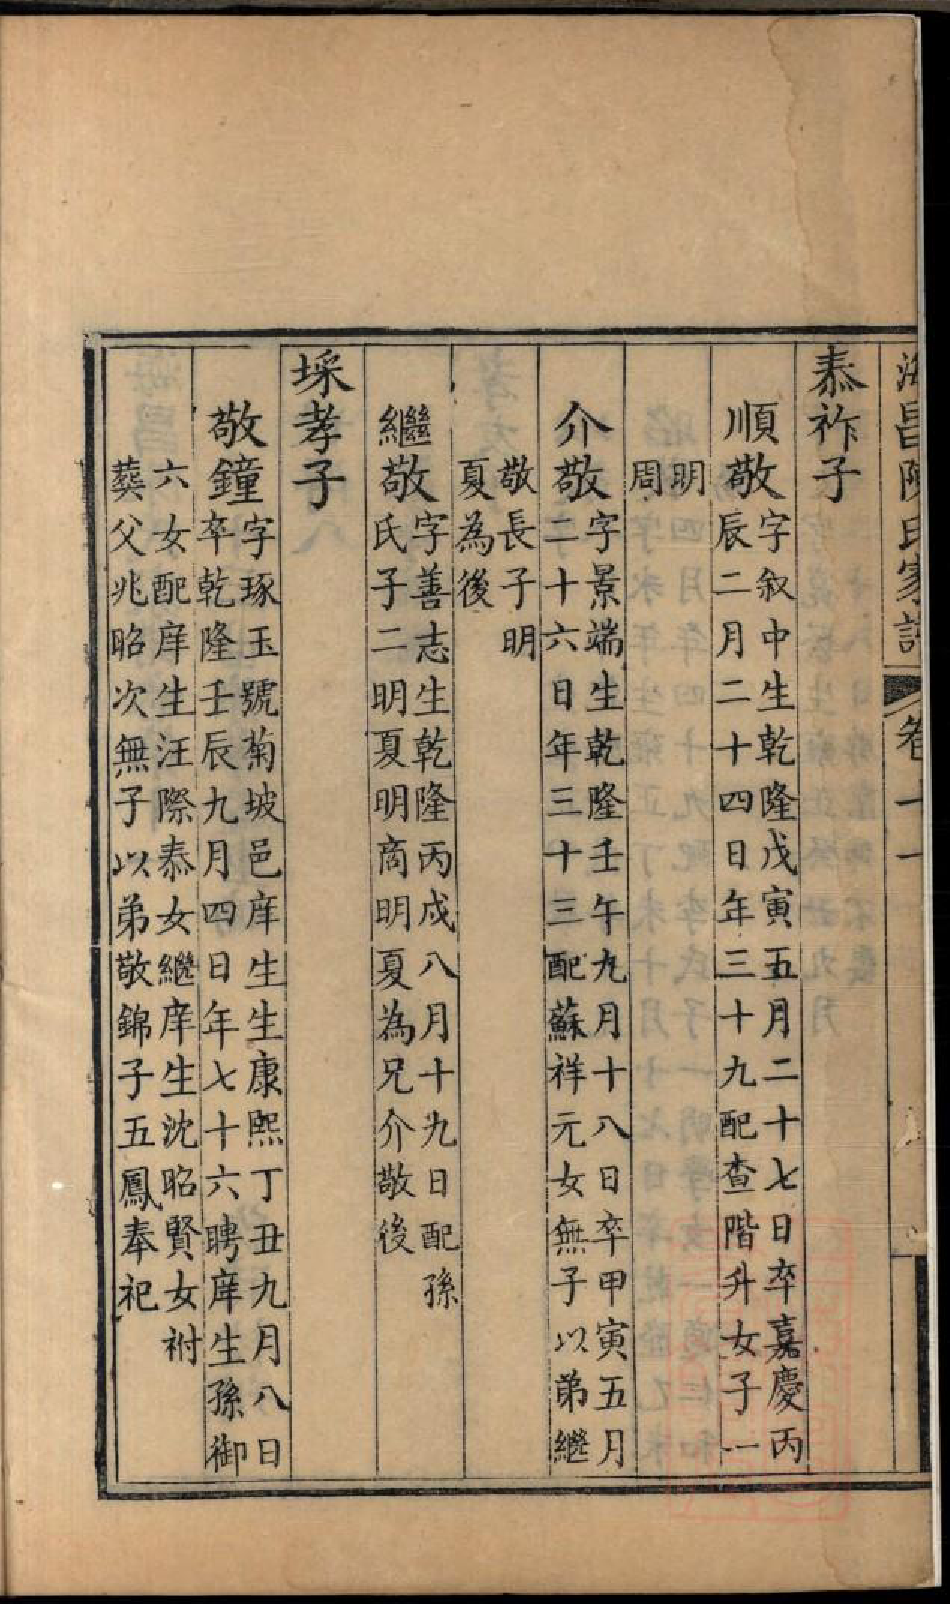 海昌陳氏家譜 卷十一
泰祚子
順敬
字叙中生乾隆戊寅五月二十七日卒嘉慶丙
辰二月二十四日年三十九配查階升女子一
明
周
介敬
字景端生乾隆壬午九月十八日卒甲寅五月
二十六日年三十三配蘇祥元女無子以弟繼
敬長子明
夏為後
繼敬
字善志生乾隆丙戌八月十九日配孫
氏子二明夏明商明夏為兄介敬後
埰孝子
敬鐘
字琢玉號菊坡邑庠生生康熙丁丑九月八日
卒乾隆壬辰九月四日年七十六聘庠生孫御
六女配庠生汪際泰女繼庠生沈昭賢女祔
葬父兆昭次無子以弟敬錦子五鳳奉祀